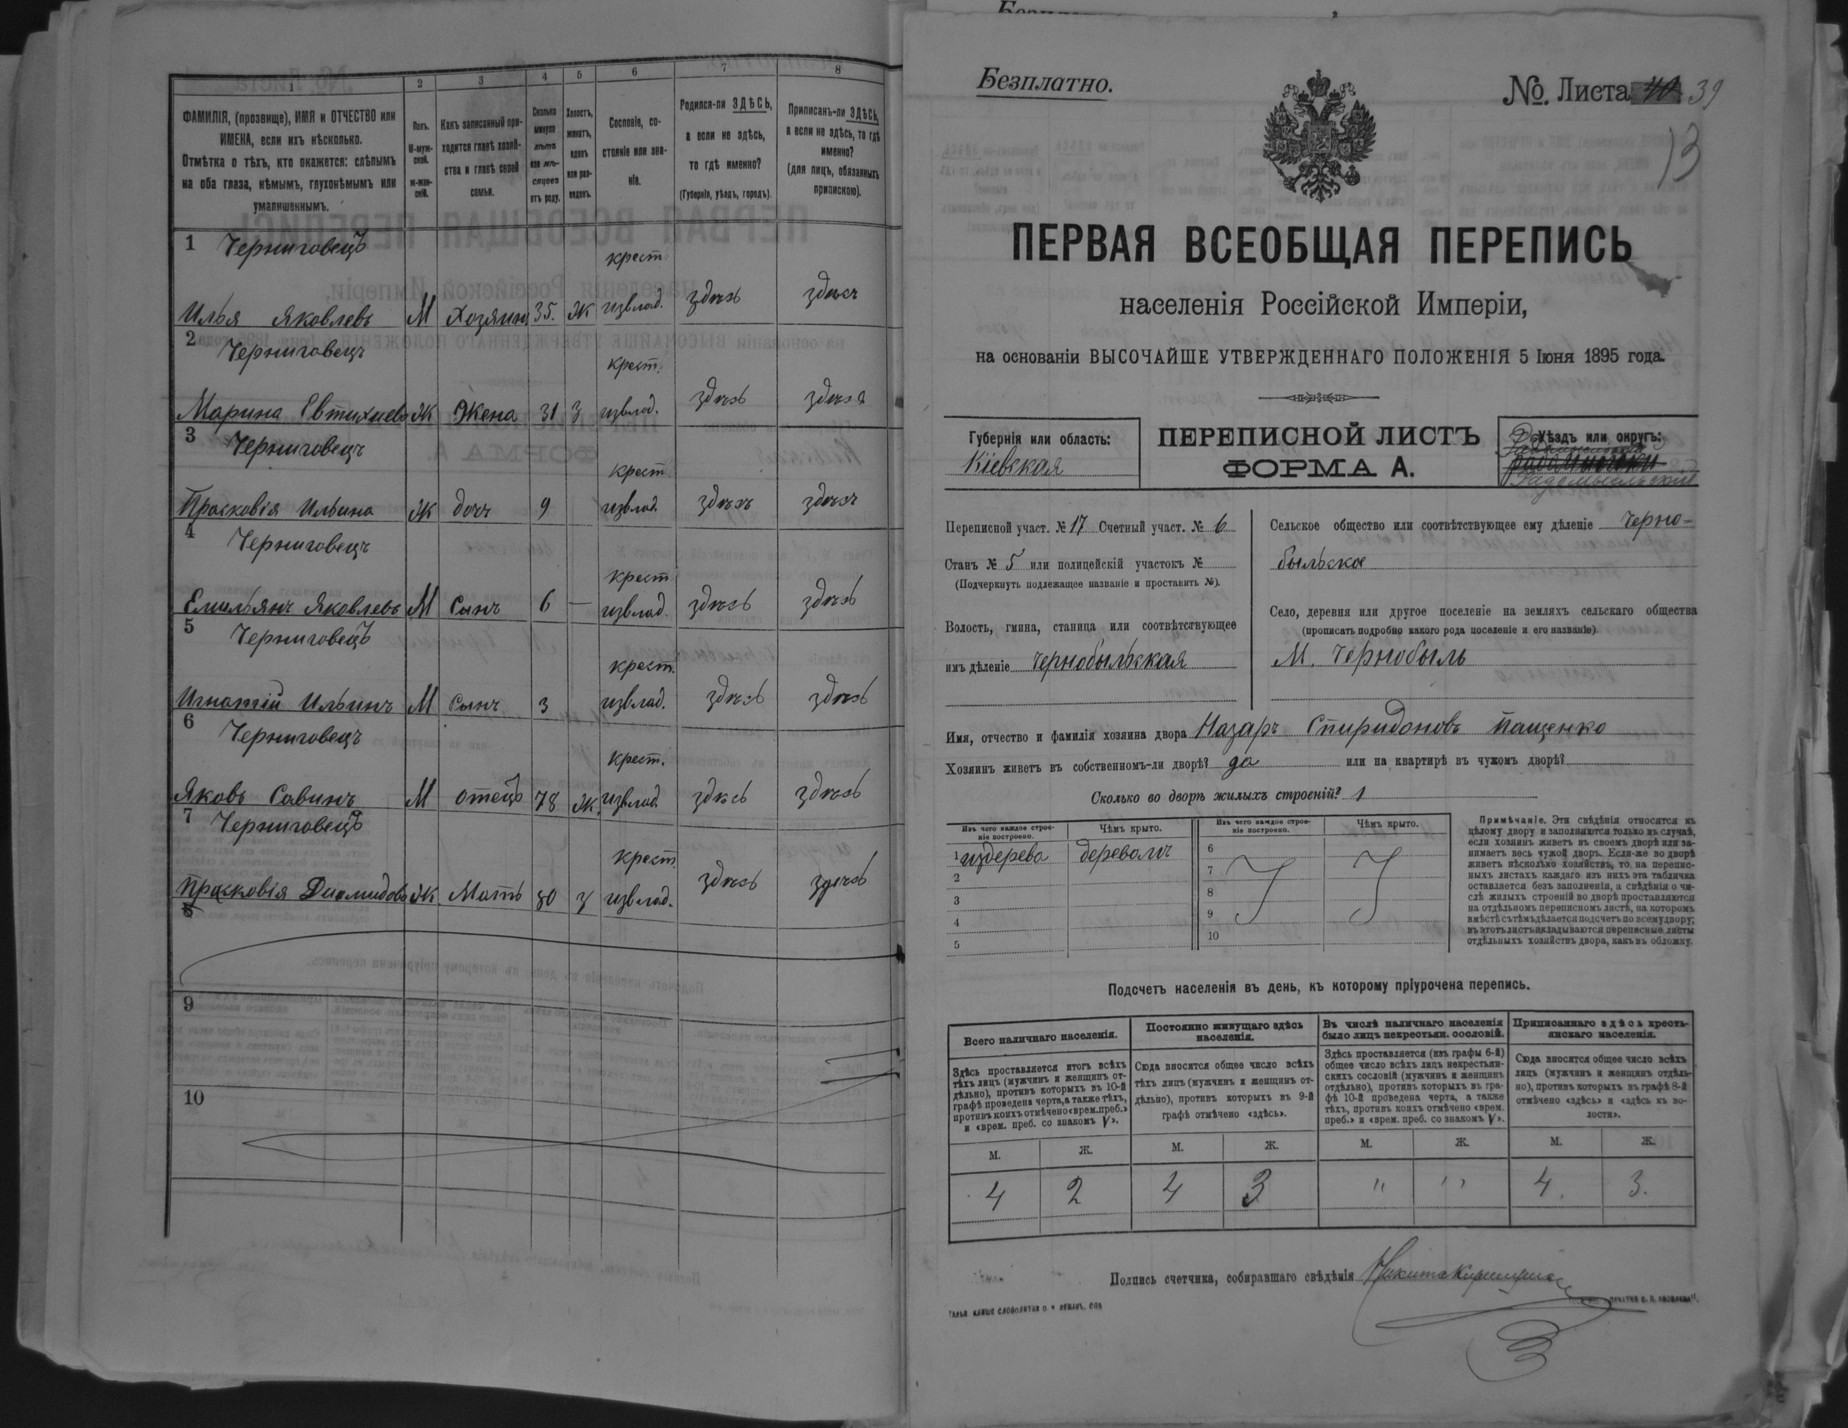 1
2
3
4
5
6
7
8
ФАМИЛІЯ, (прозвище), ИМЯ и ОТЧЕСТВО или
ИМЕНА, если ихъ нѣсколько.
Отмѣтка о тѣхъ, кто окажется: слѣпымъ
на оба глаза, нѣмымъ, глухонѣмымъ или
умалишеннымъ.
Полъ.
М-муж-
ской.
ж-жен-
скій.
Какъ записанный при-
ходится главѣ хозяй-
ства и главѣ своей
семьи.
Сколько
минуло
лѣтъ
или мѣ-
сяцевъ
отъ роду.
Холостъ,
женатъ,
вдовъ
или раз-
веденъ.
Сословіе, со-
стояніе или зва-
ніе.
Родился-ли ЗДѢСЬ,
а если не здѣсь,
то гдѣ именно?
(Губернія, уѣздъ, городъ).
Приписанъ-ли ЗДѢСЬ,
а если не здѣсь, то гдѣ
именно?
(для лицъ, обязанныхъ
припискою).
1 Черниговецъ
Илья Яковлевъ М Хозяинъ 35. Ж крест. извлад. здѣсь здѣсь
2 Черниговецъ
Марина Евтихиева Ж Жена 31 З крест. извлад. здѣсь здѣсь
3 Черниговецъ
Прасковія Ильина Ж доч 9 крест. извлад. здѣсь здѣсь
4 Черниговецъ
Емильянъ Яковлевъ М Сынъ 6 — крест извлад. здѣсь здѣсь
5 Черниговецъ
Игнатій Ильинъ М Сынъ 3 крест. извлад. здѣсь здѣсь
6 Черниговецъ
Яковъ Савинъ М отецъ 78 Ж. крест. извлад. здѣсь здѣсь
7 Черниговецъ
Прасковія Диомидова Ж. Мать 80 З крест извлад. здѣсь здѣсь
8
9
10
Безплатно.
No. Листа 40 39
13
ПЕРВАЯ ВСЕОБЩАЯ ПЕРЕПИСЬ
населенія Россійской Имперіи,
на основаніи ВЫСОЧАЙШЕ УТВЕРЖДЕННАГО ПОЛОЖЕНІЯ 5 Іюня 1895 года.
Губернія или область:
Кіевская
ПЕРЕПИСНОЙ ЛИСТЪ
ФОРМА А.
Уѣздъ или округъ:
Радомысльскій
Переписной участ. № 17 Счетный участ. № 6
Станъ № 5 или полицейскій участокъ №
(Подчеркнуть подлежащее названіе и проставить №).
Волость, гмина, станица или соотвѣтствующее
имъ дѣленіе Чернобыльская
Сельское общество или соотвѣтствующее ему дѣленіе Черно-
быльское
Село, деревня или другое поселеніе на земляхъ сельскаго общества
(прописать подробно какого рода поселеніе и его названіе)
М. Чернобыль
Имя, отчество и фамилія хозяина двора Назаръ Спиридоновъ Пащенко
Хозяинъ живетъ въ собственномъ-ли дворѣ? да или на квартирѣ въ чужомъ дворѣ?
Сколько во дворѣ жилыхъ строеній? 1
Изъ чего каждое строе-
ніе построено.
Чѣмъ крыто.
Изъ чего каждое строе-
ніе построено.
Чѣмъ крыто.
1 издерева деревомъ
2
3
4
5
6
7
8
9
10
Примѣчаніе. Эти свѣдѣнія относятся къ
цѣлому двору и заполняются только въ случаѣ,
если хозяинъ живетъ въ своемъ дворѣ или за-
нимаетъ весь чужой дворъ. Если-же во дворѣ
живетъ нѣсколько хозяйствъ, то, на перепис-
ныхъ листахъ каждаго изъ нихъ эта табличка
оставляется безъ заполненія, а свѣдѣнія о чи-
слѣ жилыхъ строеній во дворѣ проставляются
на отдѣльномъ переписномъ листѣ, на которомъ
вмѣстѣ съ тѣмъ дѣлается подсчетъ по всему двору;
въ этотъ листъ вкладываются переписные листы
отдѣльныхъ хозяйствъ двора, какъ въ обложку.
Подсчетъ населенія въ день, къ которому пріурочена перепись.
Всего наличнаго населенія.
Постоянно живущаго здѣсь
населенія.
Въ числѣ наличнаго населенія
было лицъ некрестьян. сословій.
Приписаннаго здѣсь кресть-
янскаго населенія.
Здѣсь проставляется итогъ всѣхъ
тѣхъ лицъ (мужчинъ и женщинъ от-
дѣльно), противъ которыхъ въ 10-й
графѣ проведена черта, а также тѣхъ,
противъ коихъ отмѣчено «врем. преб.»
и «врем. преб. со знакомъ V».
Сюда вносится общее число всѣхъ
тѣхъ лицъ (мужчинъ и женщинъ от-
дѣльно), противъ которыхъ въ 9-й
графѣ отмѣчено «здѣсь».
Здѣсь проставляется (изъ графы 6-й)
общее число всѣхъ лицъ некрестьян-
скихъ сословій (мужчинъ и женщинъ
отдѣльно), противъ которыхъ въ гра-
фѣ 10-й проведена черта, а также
тѣхъ, противъ коихъ отмѣчено «врем.
преб.» и «врем. преб. со знакомъ V».
Сюда вносится общее число всѣхъ
лицъ (мужчинъ и женщинъ отдѣль-
но), противъ которыхъ въ графѣ 8-й
отмѣчено «здѣсь» и «здѣсь къ во-
лости».
М. Ж. М. Ж. М. Ж. М. Ж.
4 2 4 3 " " 4. 3.
Подпись счетчика, собиравшаго свѣдѣнія Никита